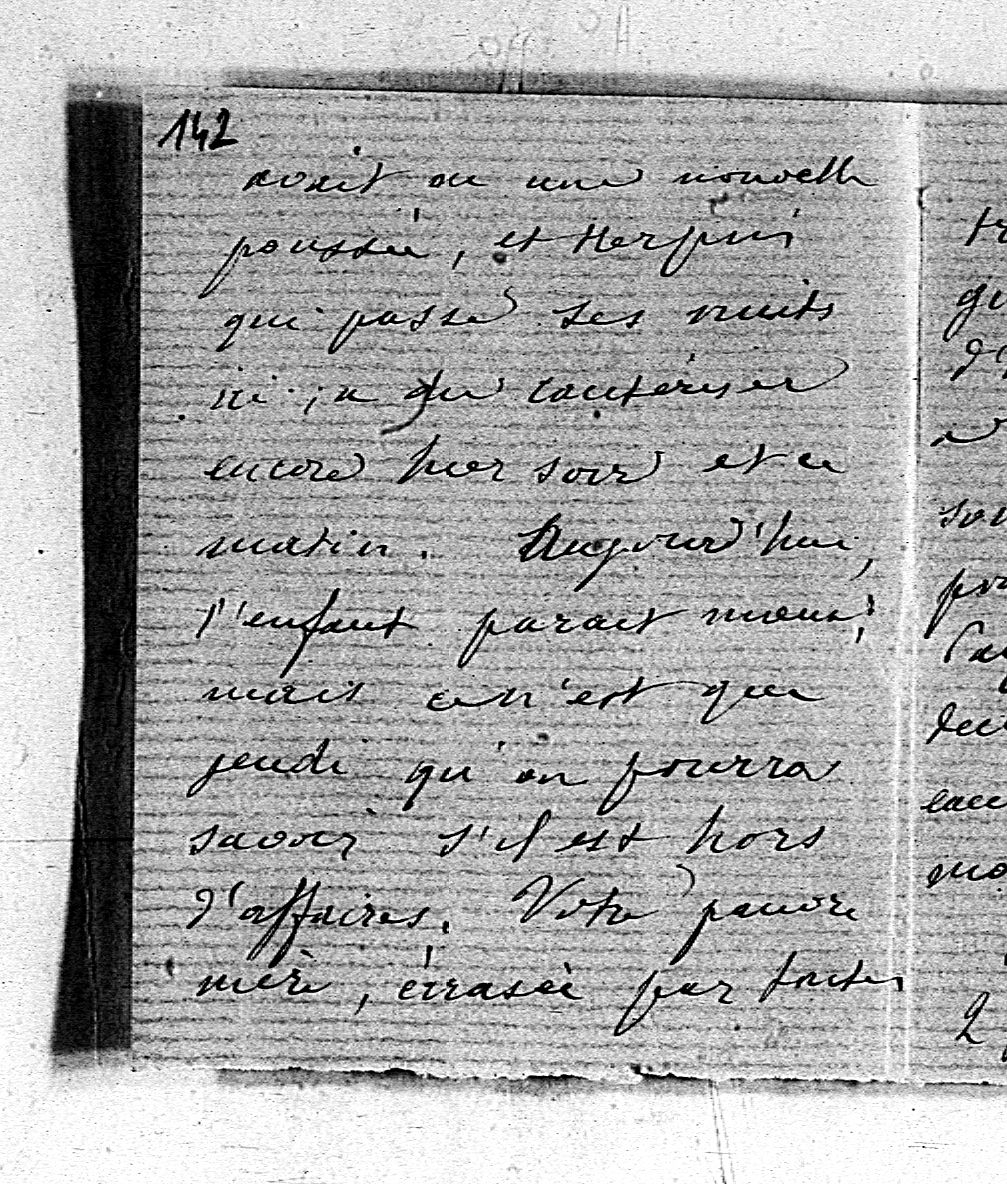 142
avait eu une nouvelle
poussée, et Herpin
qui passe ses nuits
ici, a dû cautériser
encore hier soir et ce
matin. Aujourd'hui,
l'enfant parait mieux;
mais ce n'est que
jeudi qu'on pourra
savoir s'il est hors
d'affaires. Votre pauvre
mère, écrasée par toutes